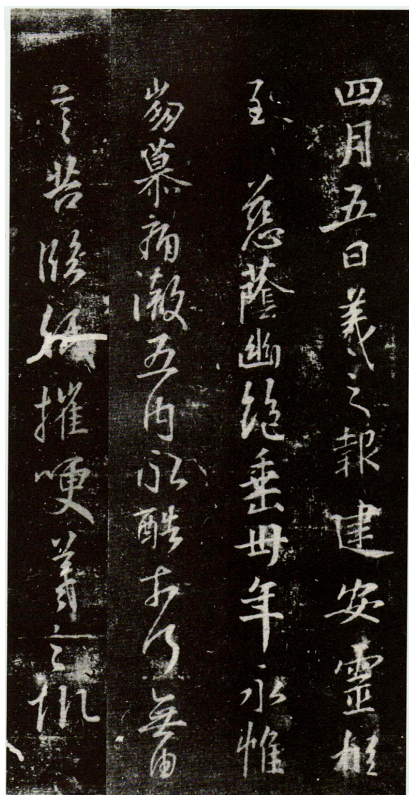 四月五日羲之報建安靈柩
至慈蔭幽絕垂卌年永惟
崩慕痛徹五內永酷奈何無由
言苦臨紙摧哽羲之報